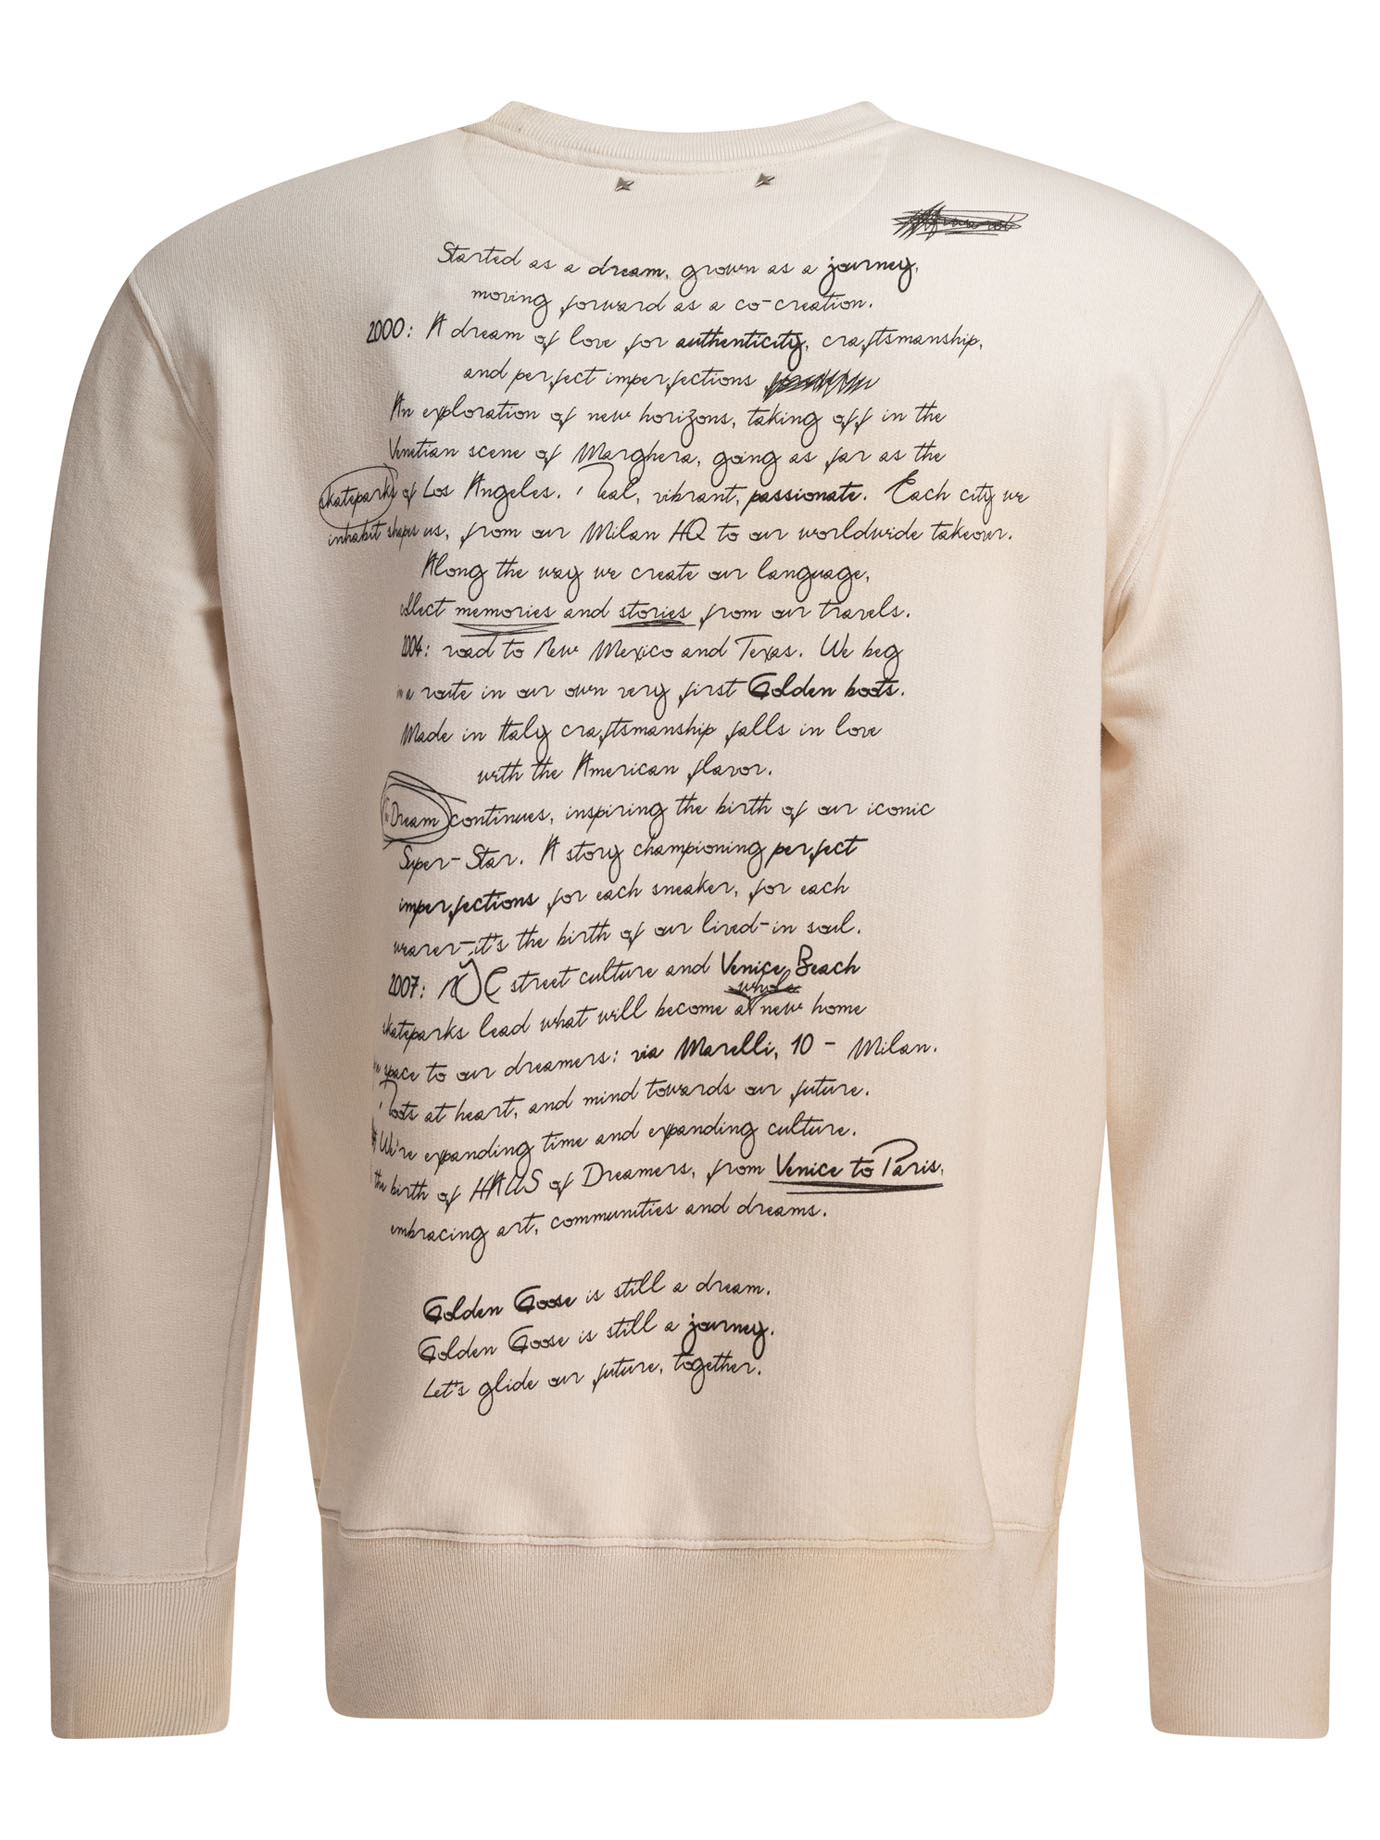 Started as a dream, grown as a journey,
moving forward as a co-creation.
2000: A dream of love for authenticity, craftsmanship,
and perfect imperfections
An exploration of new horizons, taking off in the
Venetian scene of Marghera, going as far as the
skateparks of Los Angeles. Real, vibrant, passionate. Each city we
inhabit shapes us, from our Milan HQ to our worldwide takeover.
Along the way we create our language,
ollect memories and stories from our travels.
2004: road to New Mexico and Texas. We beg
route in our own very first Golden boots.
Made in Italy craftsmanship falls in love
with the American flavor.
Dream continues, inspiring the birth of our iconic
Super-Star. A story championing perfect
imperfections for each sneaker, for each
wearer-it's the birth of our lived-in soul.
2007: NYC street culture and Venice Beach
whole
skateparks lead what will become a new home
space to our dreamers: via Morelli, 10 - Milan.
Roots at heart, and mind towards our future.
We're expanding time and expanding culture.
the birth of HAUS of Dreamers, from Venice to Paris,
embracing art, communities and dreams.
Golden Goose is still a dream.
Golden Goose is still a journey.
Let's glide our future, together.